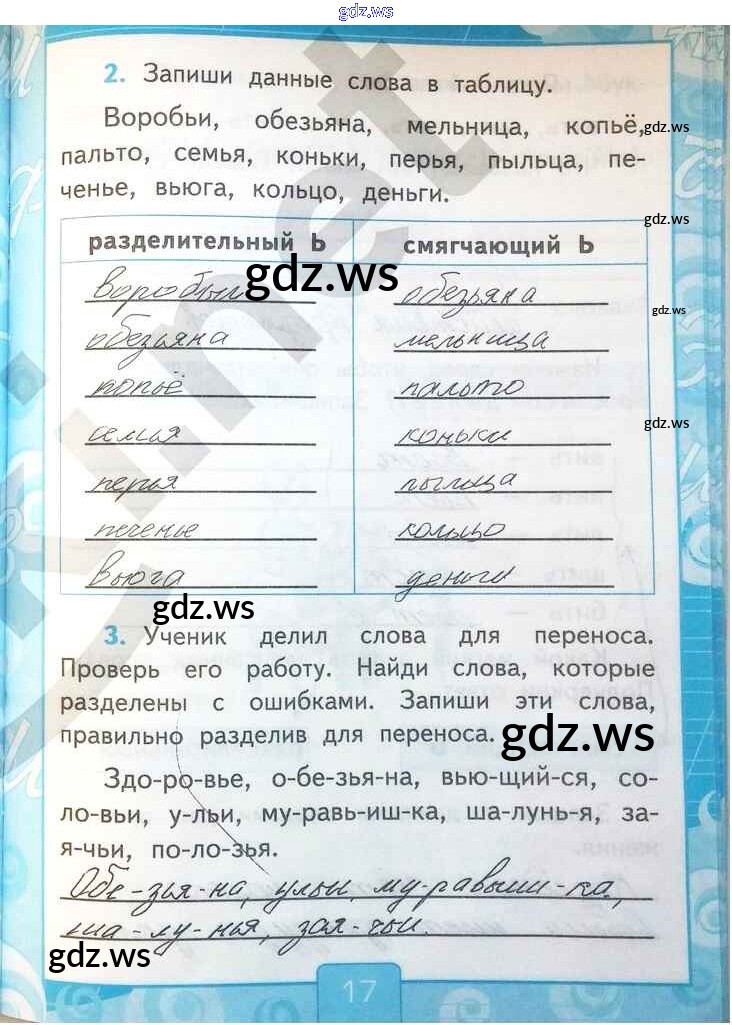 gdz.ws
2. Запиши данные слова в таблицу.
Воробьи, обезьяна, мельница, копьё, gdz.ws
пальто, семья, коньки, перья, пыльца, пе-
ченье, вьюга, кольцо, деньги.
gdz.ws
разделительный Ь смягчающий Ь
gdz.ws
воробьи обезьяна
gdz.ws
обезьяна мельница
копьё пальто
семья коньки
gdz.ws
перья пыльца
печенье кольцо
вьюга деньги
gdz.ws
3. Ученик делил слова для переноса.
Проверь его работу. Найди слова, которые
разделены с ошибками. Запиши эти слова,
правильно разделив для переноса.
gdz.ws
Здо-ро-вье, о-бе-зья-на, вью-щий-ся, со-
ло-вьи, у-льи, му-равь-иш-ка, ша-лунь-я, за-
я-чьи, по-ло-зья.
Обе-зья-на, ульи, му-равьиш-ка,
ша-лу-нья, зая-чьи.
gdz.ws
gdz.ws
17